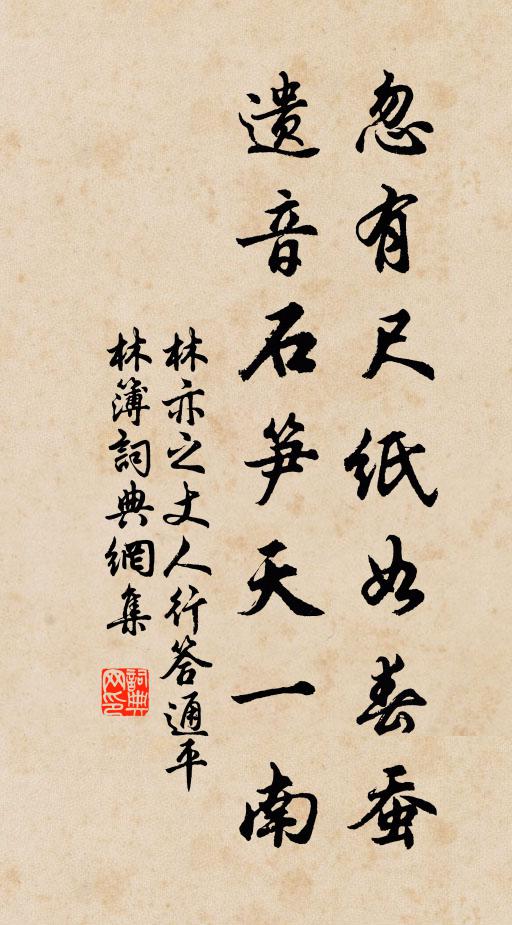 忽有尺纸如春蚕
遗音石笋天一南
林亦之丈人行答通平
林簿詞典網集
詞典网印